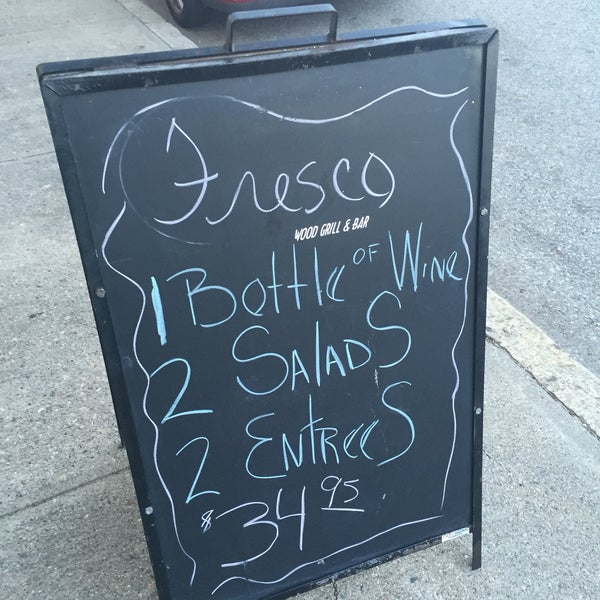 Fresco
WOOD GRILL & BAR
1 Bottle OF WINe
2 SAlADS
2 ENTReeS
$34 95